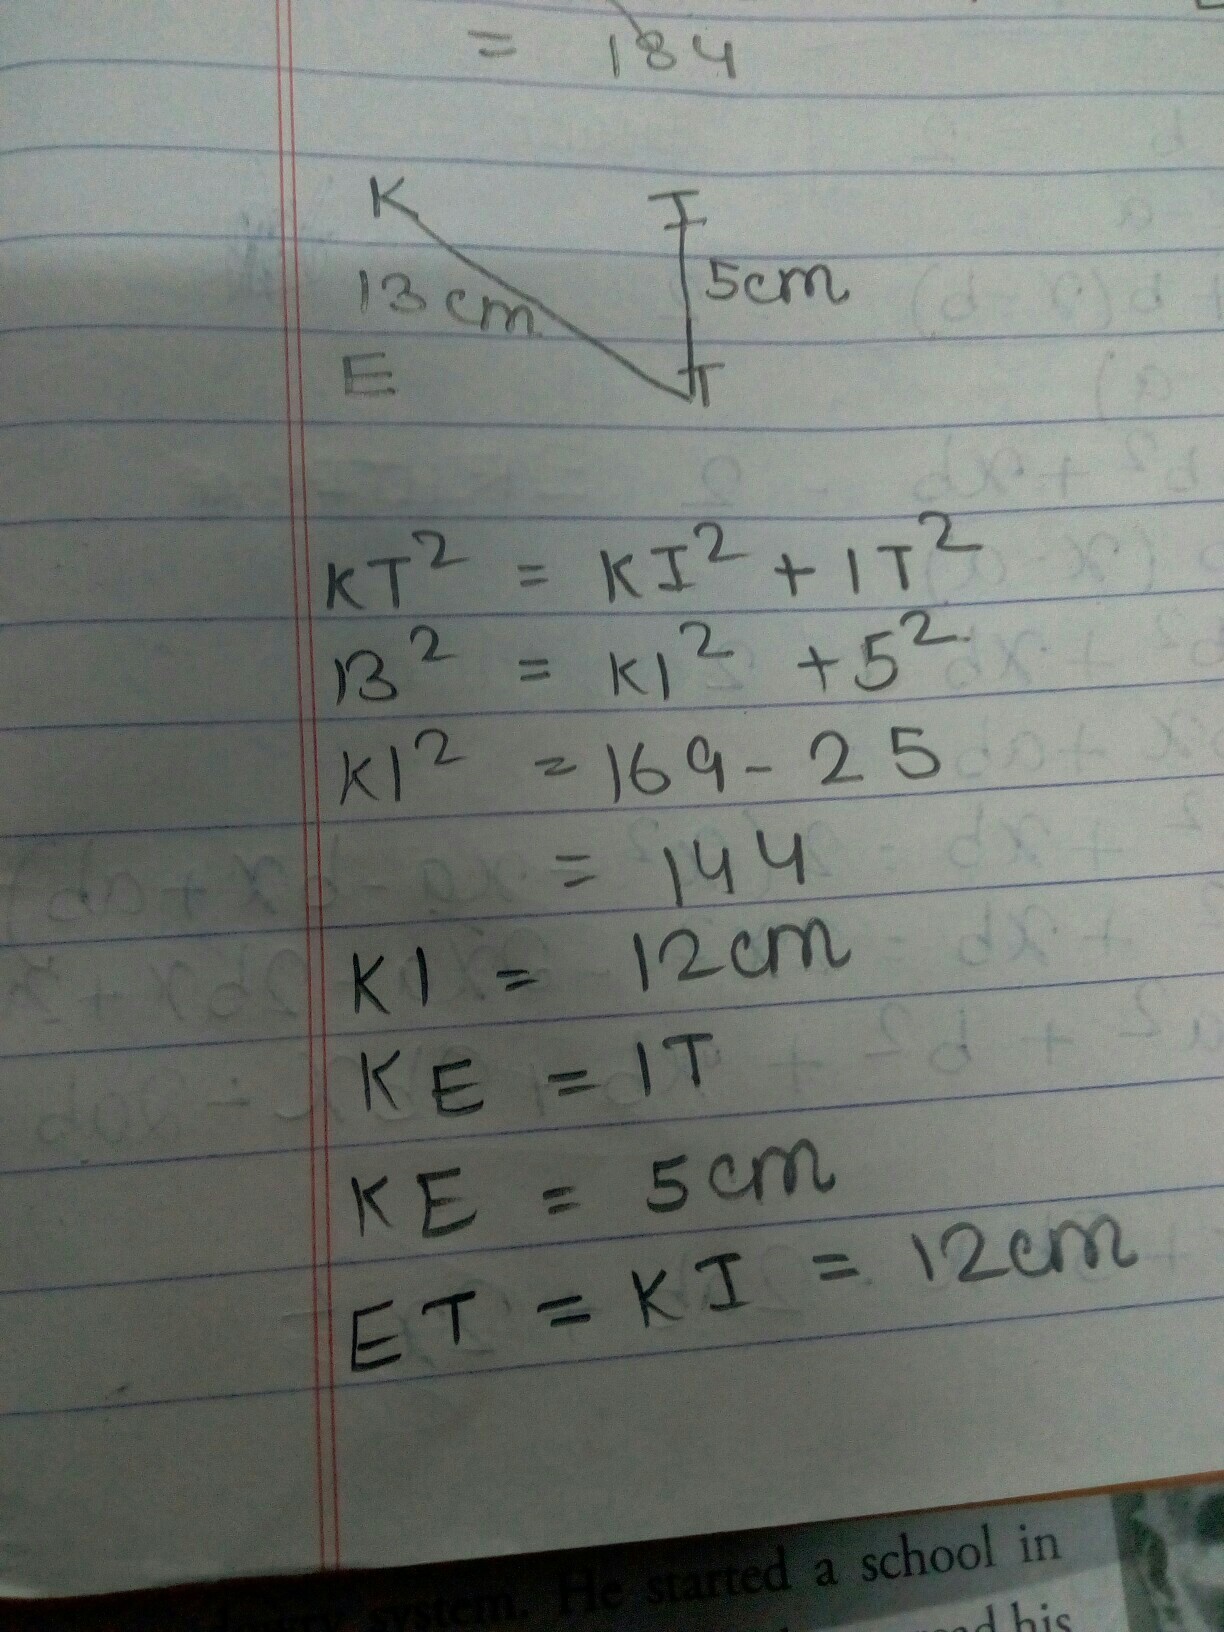 = 184
K I
13 cm 5cm
E T
KT² = KI² + IT²
13² = KI² + 5²
KI² = 169 - 25
= 144
KI = 12cm
KE = IT
KE = 5cm
ET = KI = 12cm
system. He started a school in
his